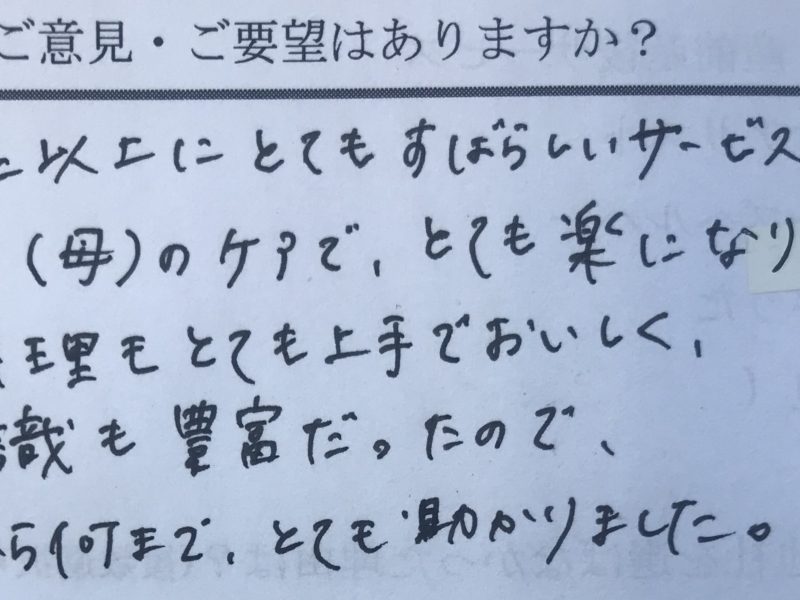 ご意見・ご要望はありますか？
た以上にとてもすばらしいサービス
(母)のケアで、とても楽になり
理もとても上手でおいしく、
識も豊富だったので、
ら何まで、とても助かりました。